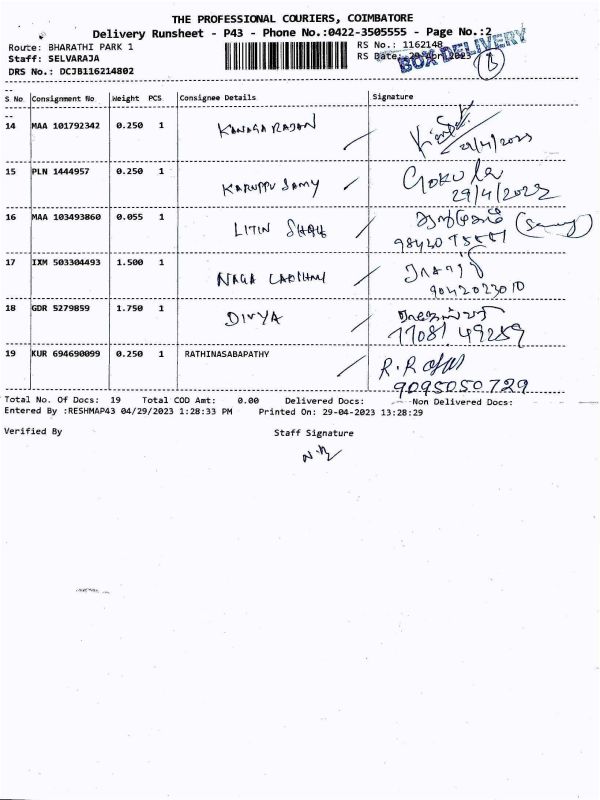 THE PROFESSIONAL COURIERS, COIMBATORE
Delivery Runsheet - P43 - Phone No.:0422-3505555 - Page No.:2
Route: BHARATHI PARK 1
RS No.: 1162148
Staff: SELVARAJA
RS Date: 29 Apr 2023
BOX DELIVERY
DRS No.: DCJB116214802
S No Consignment No Weight PCS Consignee Details Signature
14 MAA 101792342 0.250 1 KANAGARAJAN
29/4/2023
15 PLN 1444957 0.250 1 KARUPPU SAMY Gokula
29/4/2023
16 MAA 103493860 0.055 1 LITIN SHAH
17 IXM 503304493 1.500 1 NAGA
9042023010
18 GDR 5279859 1.750 1 DIVYA
77081 49259
19 KUR 694690099 0.250 1 RATHINASABAPATHY
9095050729
Total No. Of Docs: 19 Total COD Amt: 0.00 Delivered Docs: Non Delivered Docs:
Entered By :RESHMAP43 04/29/2023 1:28:33 PM Printed On: 29-04-2023 13:28:29
Verified By Staff Signature